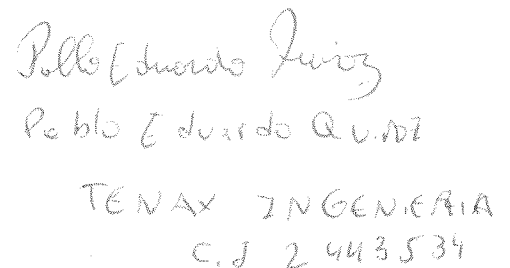 Pablo Eduardo Quiroz
Pablo Eduardo Quiroz
TENAX INGENIERIA
C.I 2 443534